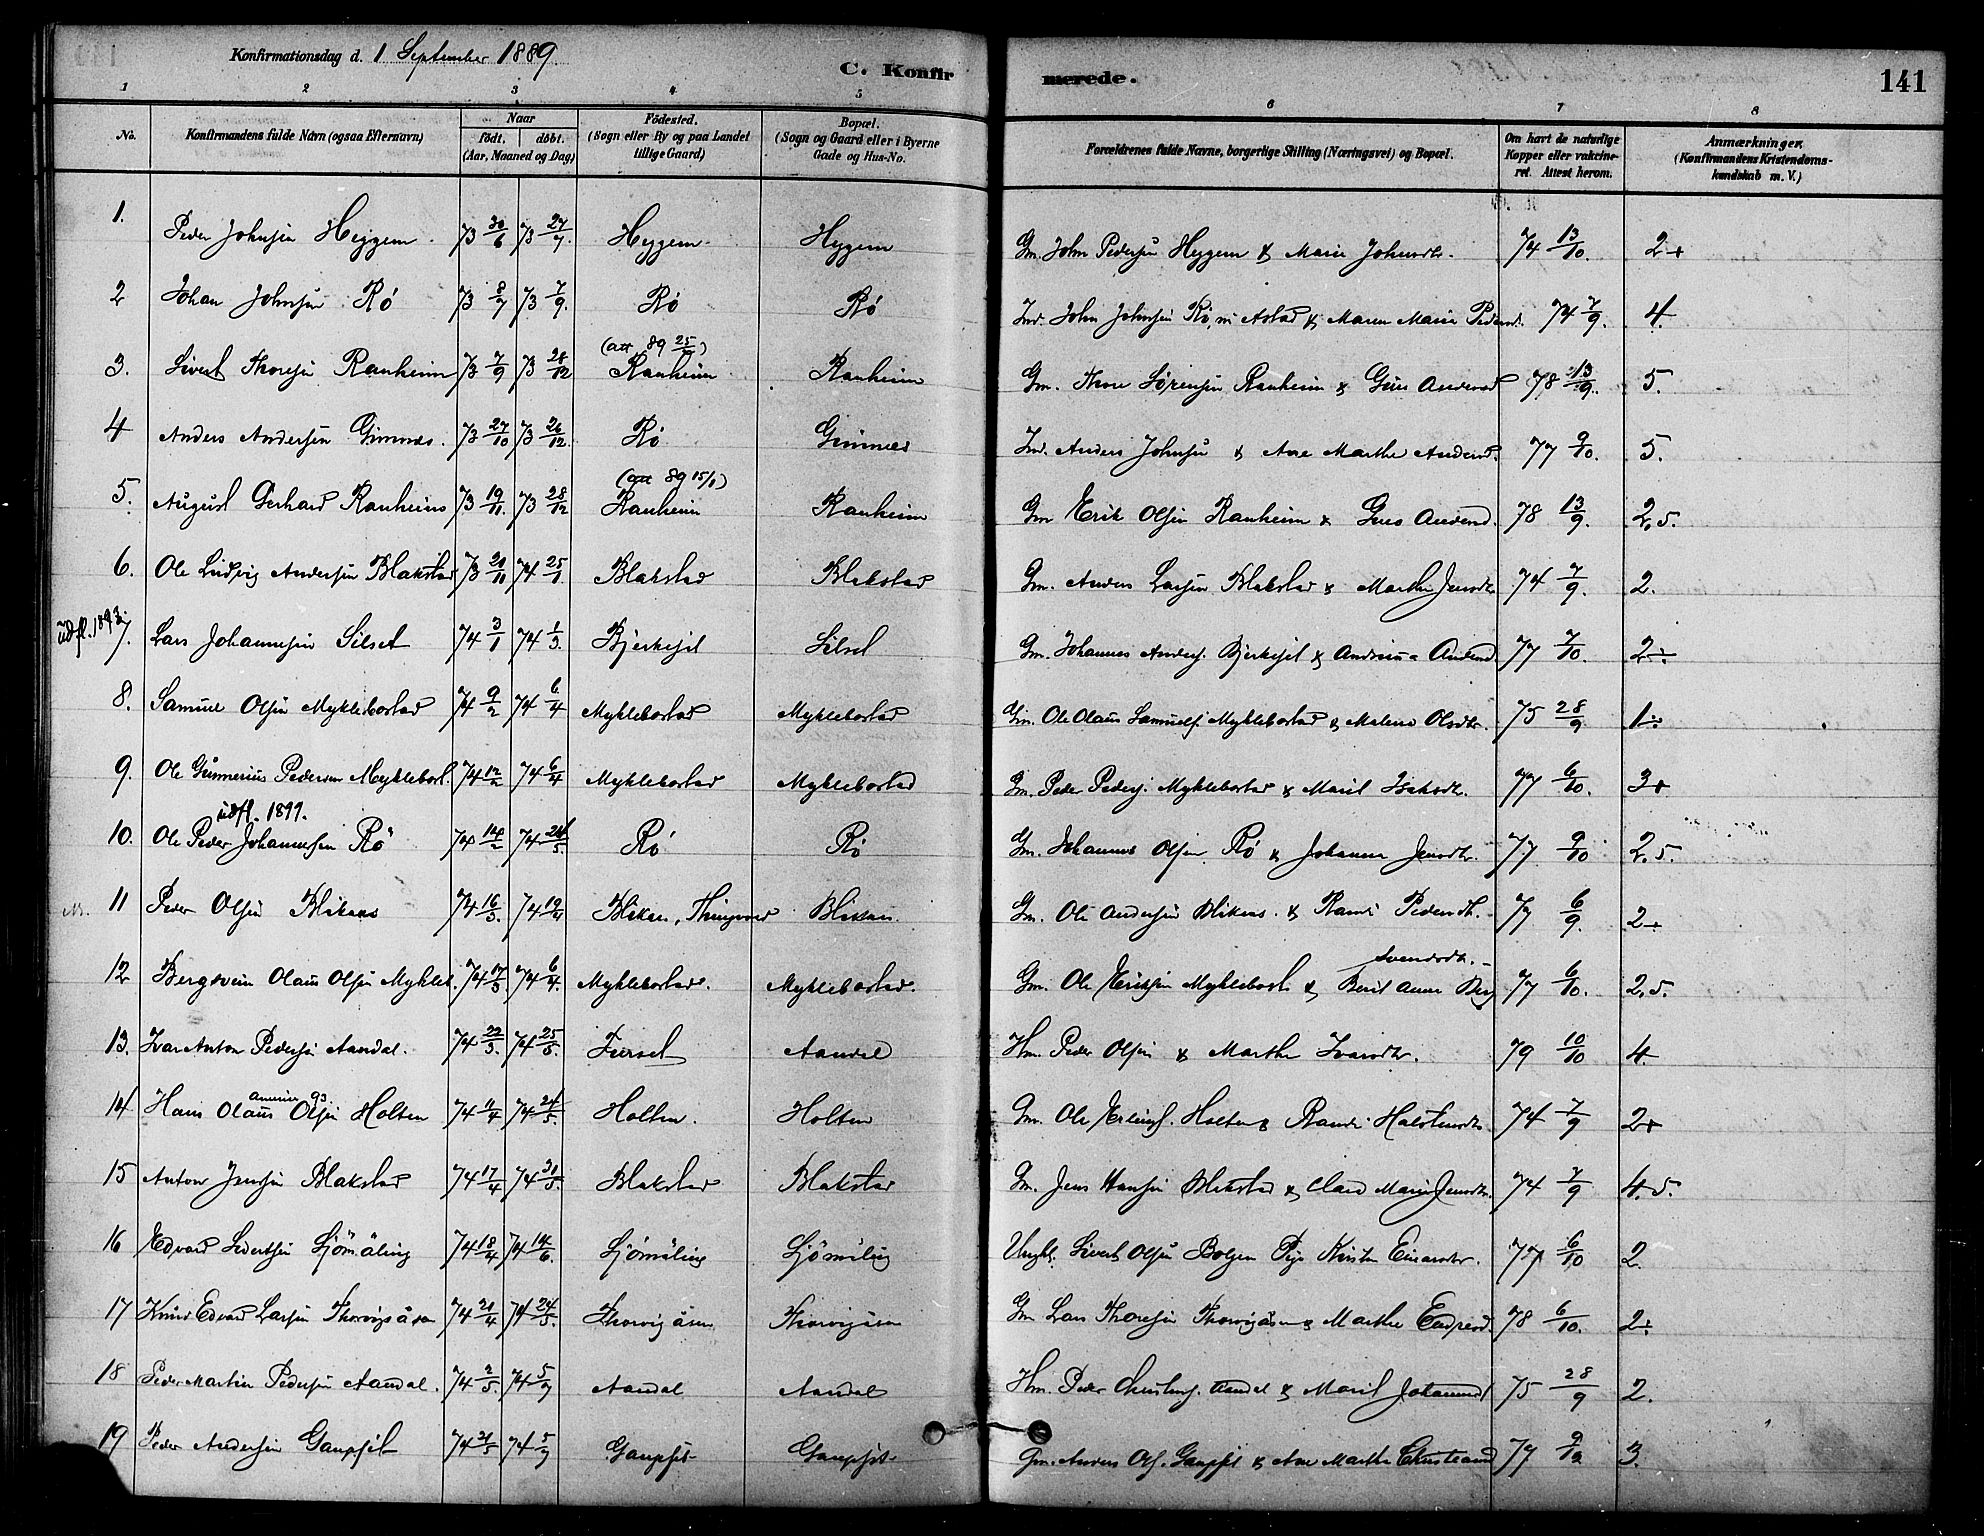 Konfirmationsdag d. 1 September 1889.
C. Konfirmerede.
141
1 2 3 4 5 6 7 8
No.
Konfirmandens fulde Navn (ogsaa Efternavn)
Naar
født. døbt.
(Aar, Maaned og Dag)
Fødested.
(Sogn eller By og paa Landet
tillige Gaard)
Bopæl.
(Sogn og Gaard eller i Byerne
Gade og Hus-No.
Forældrenes fulde Navne, borgerlige Stilling (Næringsvei) og Bopæl.
Om havt de naturlige
Kopper eller vakcine-
ret. Attest herom.
Anmærkninger.
(Konfirmandens Kristendoms-
kundskab m. V.)
1. Peder Johnsen Heggem. 73 30/6 73 27/7. Heggem. Heggem Gm. John Pedersen Heggem & Marie Johnsdtr. 74 13/10. 2+
2 Johan Johnsen Rö 73 8/7 73 7/9. Rö Rö Ind. John Johnsen Rö, & Maren Marie 74 7/9. 4.
(att 89 25/)
3. Sivert Thoresen Ranheim 73 7/9 73 28/12 Ranheim Ranheim Gm. Thore Sörensen Ranheim & Guri 78 13/9. 5.
4 Anders Andersen Gimnes. 73 27/10 73 26/12. Rö Gimnes Ind. Anders Johnsen & Ane Marthe 77 9/10. 5.
(att 89 15/1)
5. August Gerhard Ranheim 73 19/11. 73 28/12 Ranheim Ranheim Gm Erik Olsen Ranheim & 78 13/9. 2,5.
6. Ole Ludvig Andersen Blakstad 73 20/11 74 25/1 Blakstad Blakstad Gm. Anders Larsen Blakstad & Marthe Jensdtr 74 7/9. 2.
udfl. 1893.
7. Lars Johannesen Silset 74 3/1 74 1/3. Bjerkesæt Silset Gm. Johannes Anders. & 77 7/10. 2÷.
8. Samuel Olsen Myklebostad 74 9/2 74 6/4 Myklebostad Myklebostad Gm. Ole Olaus Samuels. Myklebostad & Malene Olsdtr. 75 28/9 1÷
9. Ole Gunnerius Pedersen Myklebost. 74 12/2 74 6/4 Myklebostad Myklebostad Gm. Peder Peders. Myklebostad & Marit 77 6/10. 3+
udfl. 1899.
10. Ole Peder Johannesen Rö 74 14/2 74 24/5. Rö Rö Gm. Johannes Olsen Rö & Johanna Jensdtr. 77 9/10 2,5.
11 Peder Olsen Blikaas 74 16/3. 74 19/4 Blikaas, Thingvold Blikaas. Gm. Ole Andersen Blikaas. & Randi Pedersdtr. 77 6/9. 2+
Svendsdtr.
12 Bergsvein Olaus Olsen Mykleb. 74 17/3 74 6/4. Myklebostad. Myklebostad. Gm. Ole Eriksen Myklebost & Berit Anne Berg 77 6/10. 2,5.
13. Ivar Anton Pedersen Aandal. 74 22/3. 74 25/5. Furset Aandal Hm. Peder Olsen & Marthe Ivarsdtr. 79 10/10 4.
Amerika 93
14 Hans Olaus Olsen Holten 74 11/4 74 24/5. Holten. Holten Gm. Ole Erlings. Holten & Randi Halstensdtr 74 7/9 2+
15 Anton Jensen Blakstad 74 17/4 74 31/5. Blakstad Blakstad Gm. Jens Hansen Blakstad & Clara Marie Jensdtr. 74 7/9 4.5.
16 Edvard Sivertsen Sjömæling 74 18/4 74 14/6. Sjömæling Sjömæling Ungk. Sivert Olsen Bolgen Pige Kirsten Einarsdtr. 77 6/10 2.
17 Knud Edvard Larsen Thorvigsåsen 74 21/4 74 24/5. Thorvigåsen Thorvigåsen Gm Lars Thoresen Thorvigåsen & Marthe 78 6/10. 2÷
18 Peder Martin Pedersen Aandal. 74 2/5. 74 5/7 Aandal Aandal Hm. Peder Christens. Aandal & Marit 75 28/9 2.
19 Peder Andersen Gaupset 74 21/5 74 5/7 Gaupset Gaupset Gm. Anders Ols. Gaupset & Ane Marthe 77 3.